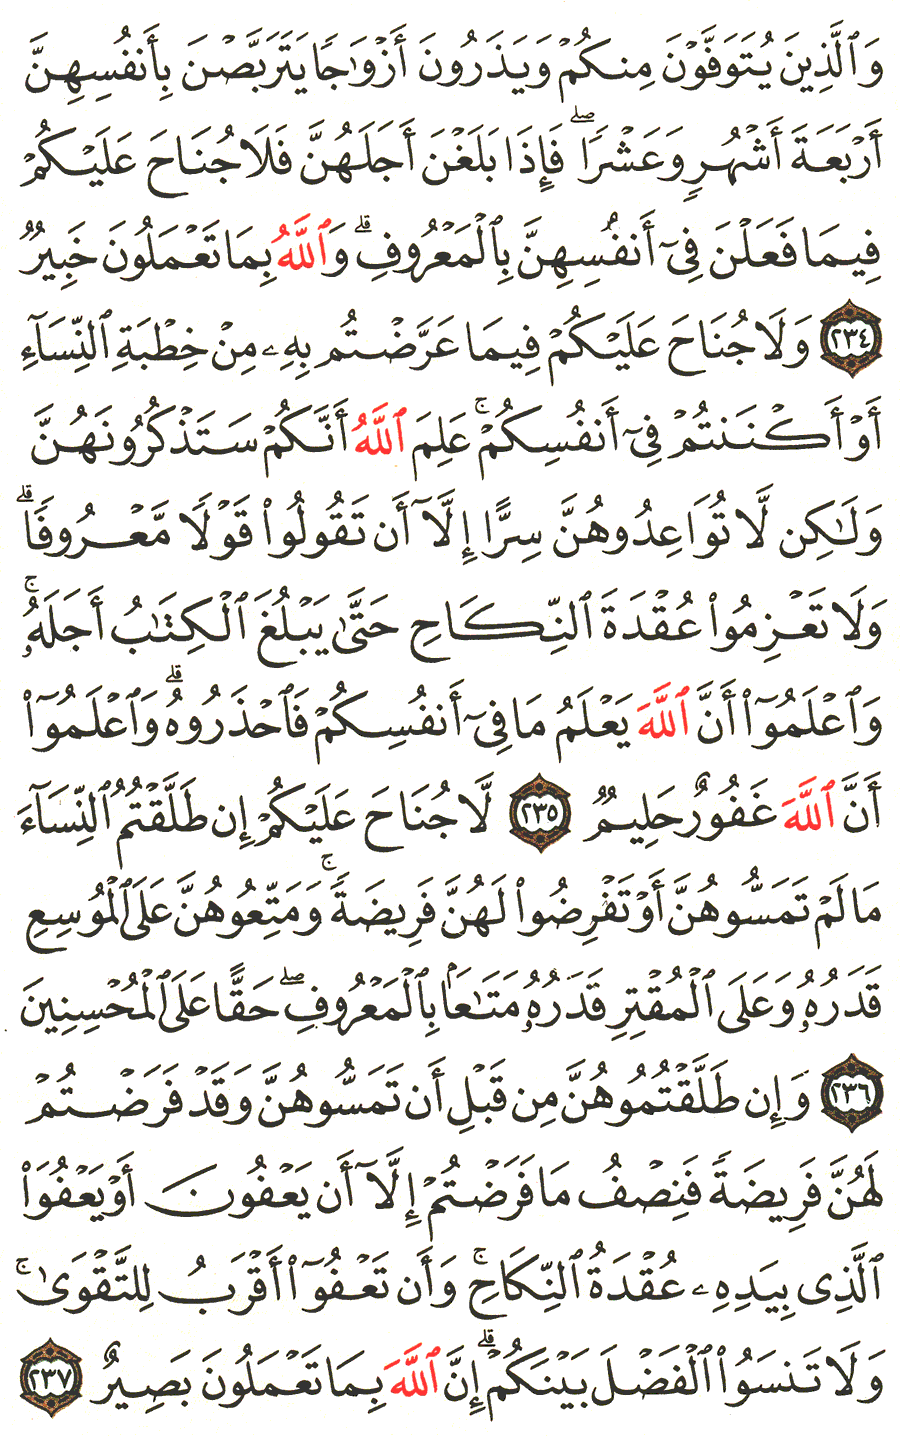 وَٱلَّذِينَ يُتَوَفَّوْنَ مِنكُمْ وَيَذَرُونَ أَزْوَٰجًا يَتَرَبَّصْنَ بِأَنفُسِهِنَّ
أَرْبَعَةَ أَشْهُرٍ وَعَشْرًا ۖ فَإِذَا بَلَغْنَ أَجَلَهُنَّ فَلَا جُنَاحَ عَلَيْكُمْ
فِيمَا فَعَلْنَ فِىٓ أَنفُسِهِنَّ بِٱلْمَعْرُوفِ ۗ وَٱللَّهُ بِمَا تَعْمَلُونَ خَبِيرٌ
٢٣٤ وَلَا جُنَاحَ عَلَيْكُمْ فِيمَا عَرَّضْتُم بِهِۦ مِنْ خِطْبَةِ ٱلنِّسَآءِ
أَوْ أَكْنَنتُمْ فِىٓ أَنفُسِكُمْ ۚ عَلِمَ ٱللَّهُ أَنَّكُمْ سَتَذْكُرُونَهُنَّ
وَلَـٰكِن لَّا تُوَاعِدُوهُنَّ سِرًّا إِلَّآ أَن تَقُولُوا۟ قَوْلًا مَّعْرُوفًا ۗ
وَلَا تَعْزِمُوا۟ عُقْدَةَ ٱلنِّكَاحِ حَتَّىٰ يَبْلُغَ ٱلْكِتَـٰبُ أَجَلَهُۥ ۚ
وَٱعْلَمُوٓا۟ أَنَّ ٱللَّهَ يَعْلَمُ مَا فِىٓ أَنفُسِكُمْ فَٱحْذَرُوهُ ۗ وَٱعْلَمُوٓا۟
أَنَّ ٱللَّهَ غَفُورٌ حَلِيمٌ ٢٣٥ لَّا جُنَاحَ عَلَيْكُمْ إِن طَلَّقْتُمُ ٱلنِّسَآءَ
مَا لَمْ تَمَسُّوهُنَّ أَوْ تَفْرِضُوا۟ لَهُنَّ فَرِيضَةً ۚ وَمَتِّعُوهُنَّ عَلَى ٱلْمُوسِعِ
قَدَرُهُۥ وَعَلَى ٱلْمُقْتِرِ قَدَرُهُۥ مَتَـٰعًۢا بِٱلْمَعْرُوفِ ۖ حَقًّا عَلَى ٱلْمُحْسِنِينَ
٢٣٦ وَإِن طَلَّقْتُمُوهُنَّ مِن قَبْلِ أَن تَمَسُّوهُنَّ وَقَدْ فَرَضْتُمْ
لَهُنَّ فَرِيضَةً فَنِصْفُ مَا فَرَضْتُمْ إِلَّآ أَن يَعْفُونَ أَوْ يَعْفُوَا۟
ٱلَّذِى بِيَدِهِۦ عُقْدَةُ ٱلنِّكَاحِ ۚ وَأَن تَعْفُوٓا۟ أَقْرَبُ لِلتَّقْوَىٰ ۚ
وَلَا تَنسَوُا۟ ٱلْفَضْلَ بَيْنَكُمْ ۗ إِنَّ ٱللَّهَ بِمَا تَعْمَلُونَ بَصِيرٌ ٢٣٧